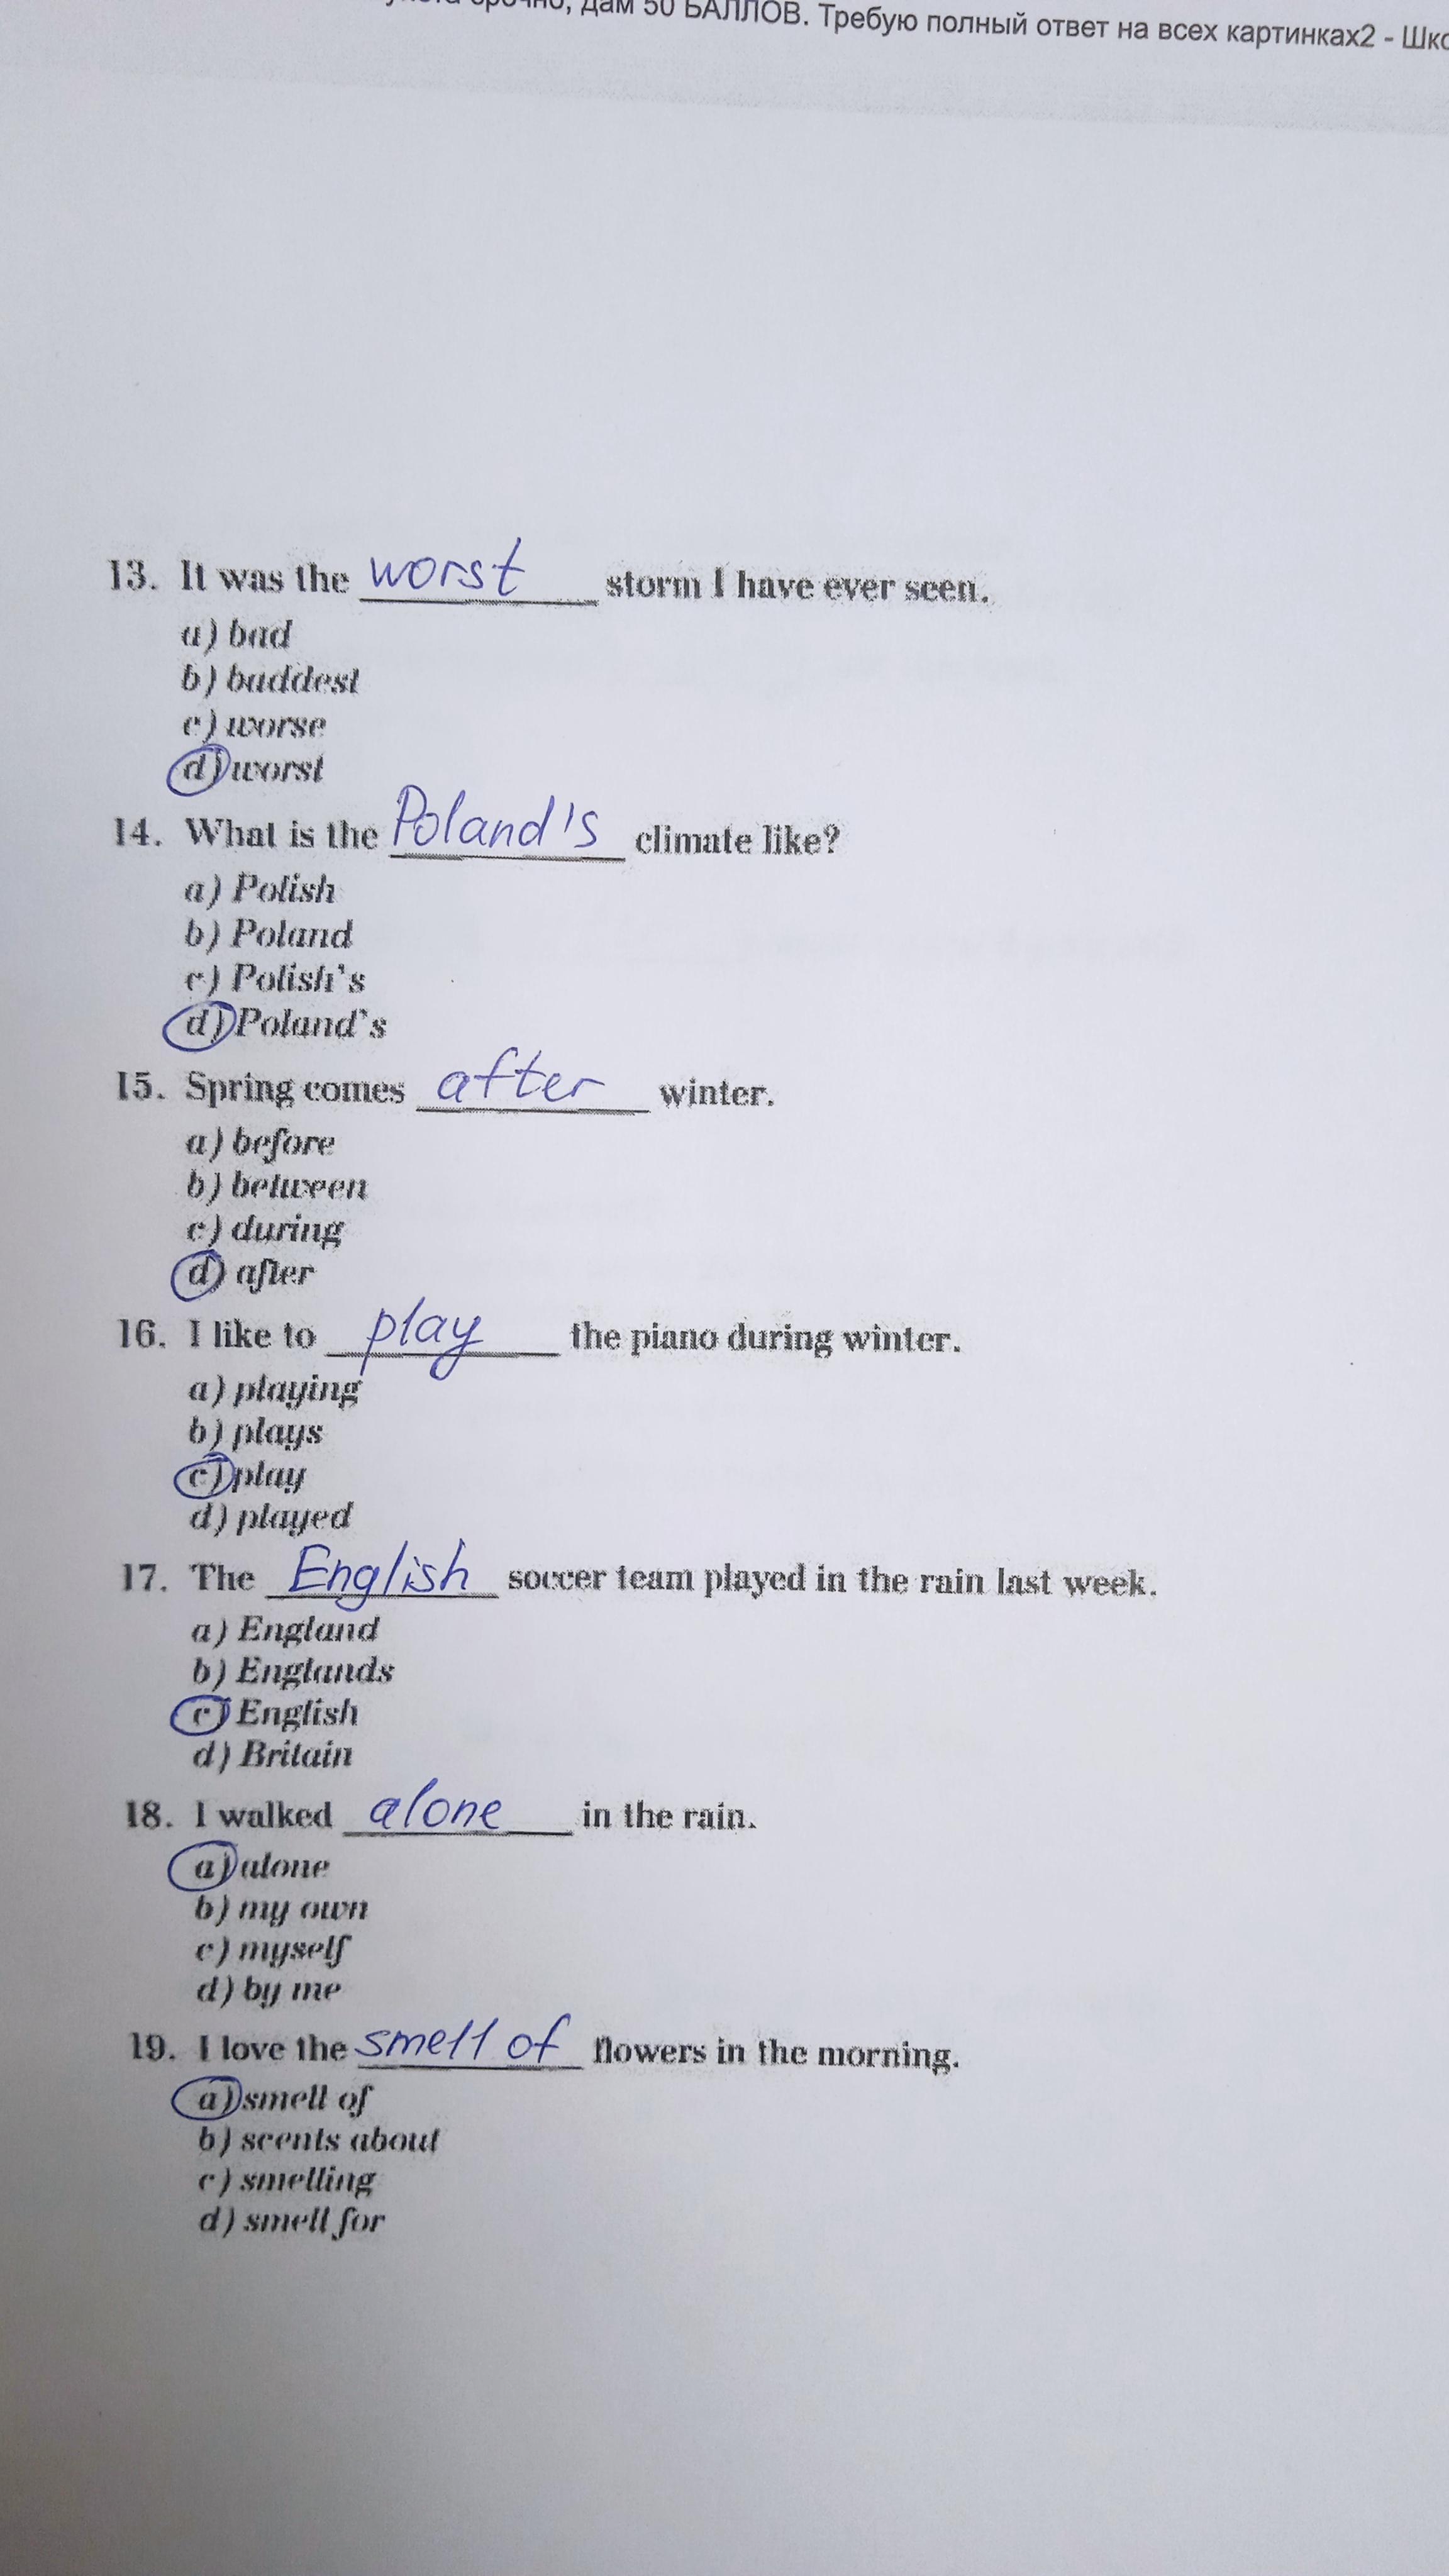 срочно, дам 50 БАЛЛОВ. Требую полный ответ на всех картинках2 - Шко
13. It was the worst storm I have ever seen.
a) bad
b) baddest
c) worse
d) worst
14. What is the Poland's climate like?
a) Polish
b) Poland
c) Polish's
d) Poland's
15. Spring comes after winter.
a) before
b) between
c) during
d) after
16. I like to play the piano during winter.
a) playing
b) plays
c) play
d) played
17. The English soccer team played in the rain last week.
a) England
b) Englands
c) English
d) Britain
18. I walked alone in the rain.
a) alone
b) my own
c) myself
d) by me
19. I love the smell of flowers in the morning.
a) smell of
b) scents about
c) smelling
d) smell for